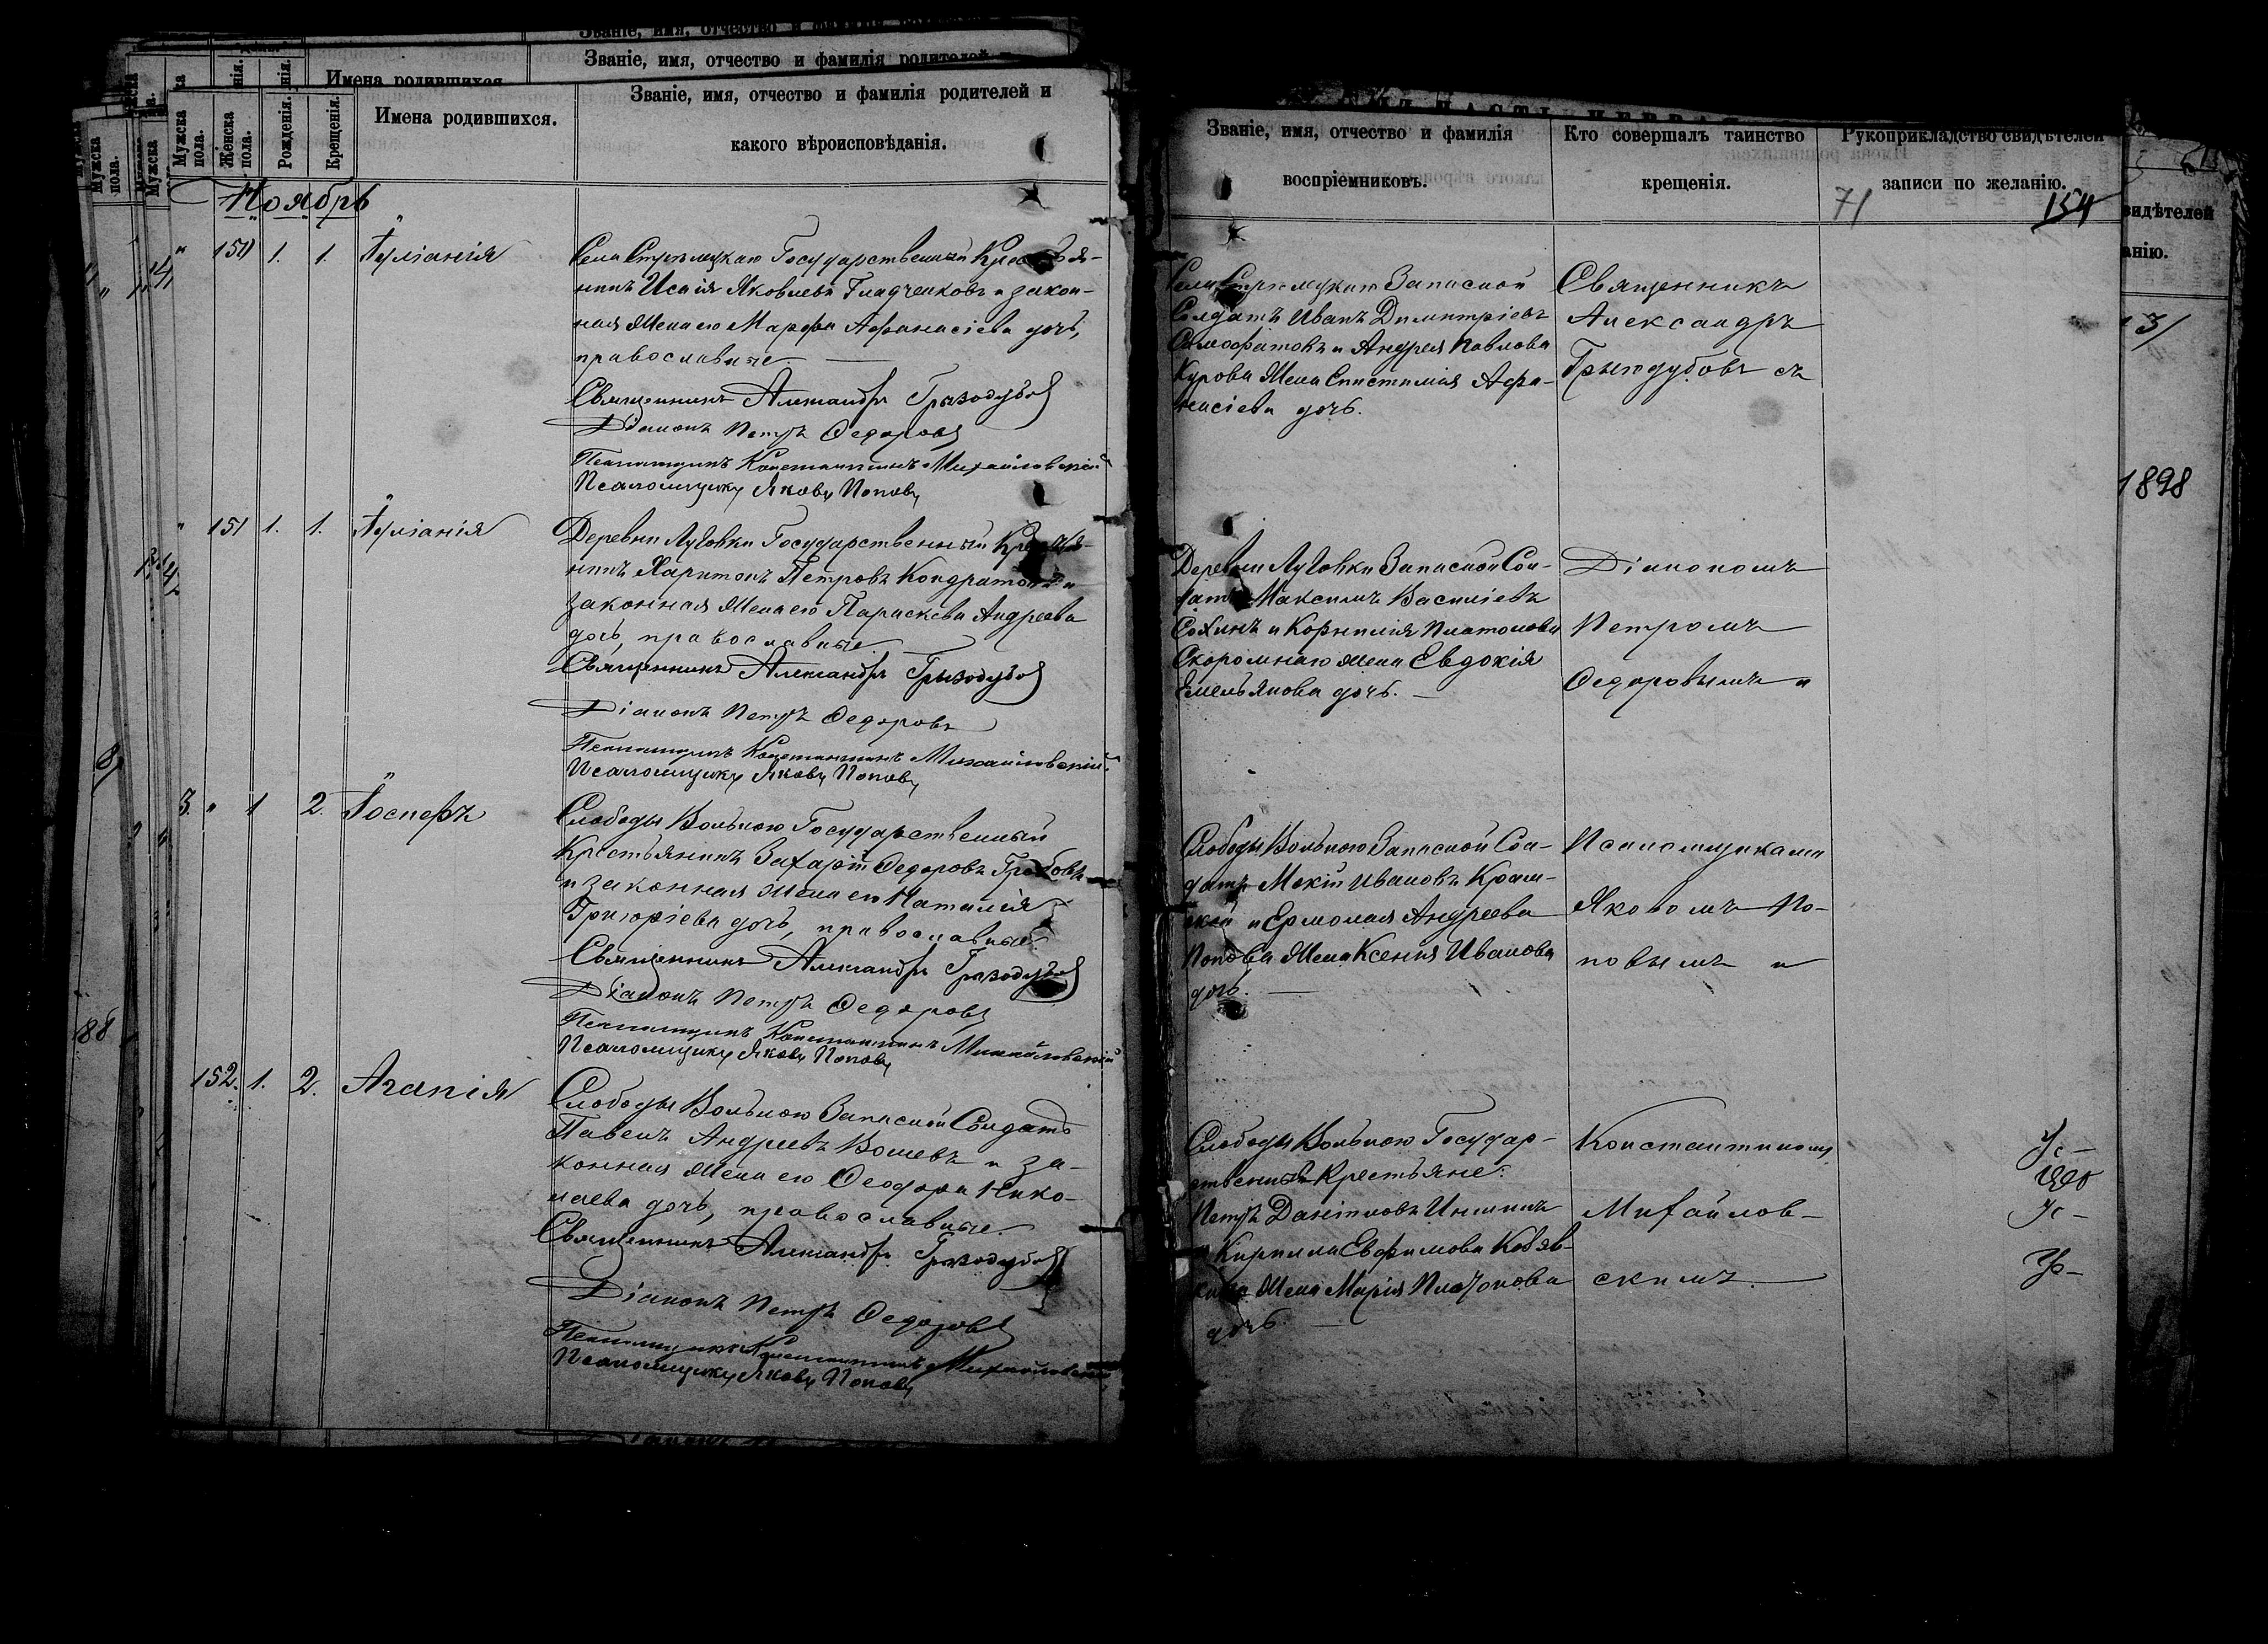 Званіе, имя, отчество и фамилія родителей
Имена родившихся
Мужска пола.
Женска пола.
Рожденія.
Крещенія.
Имена родившихся.
Званіе, имя, отчество и фамилія родителей и
какого вѣроисповѣданія.
Ноябрь
" 150 1. 1. Іуліанія
Села Стрѣлецкаго Государственный Крестья-
нинъ Исаія Яковлевъ Гладченковъ и закон-
ная жена его Марфа Афанасіева дочь,
православные.
Священникъ Александръ Грызодубов
Діаконъ Петръ Ѳедоровъ
Псаломщикъ Константинъ Михайловскій
Псаломщикъ Яковъ Поповъ
" 151 1. 1. Іуліанія
Деревни Луговки Государственный Крестья-
нинъ Харитонъ Петровъ Кондратовъ и
законная жена его Параскева Андреева
дочь, православные.
Священникъ Александръ Грызодубов
Діаконъ Петръ Ѳедоровъ
Псаломщикъ Константинъ Михайловскій
Псаломщикъ Яковъ Поповъ
3. " 1 2. Іосифъ
Слободы Вольной Государственный
Крестьянинъ Захарій Ѳедоровъ
и законная жена его Наталія
Григоріева дочь, православные.
Священникъ Александръ Грызодубов
Діаконъ Петръ Ѳедоровъ
Псаломщикъ Константинъ Михайловскій
Псаломщикъ Яковъ Поповъ
152. 1. 2. Агапія
Слободы Вольной Запасной Солдатъ
Павелъ Андреевъ Вошевъ и за-
конная жена его Ѳеодора Нико-
лаева дочь, православные.
Священникъ Александръ Грызодубов
Діаконъ Петръ Ѳедоровъ
Псаломщикъ Константинъ Михайловскій
Псаломщикъ Яковъ Поповъ
Званіе, имя, отчество и фамилія
воспріемниковъ.
Кто совершалъ таинство
крещенія.
Рукоприкладство свидѣтелей
записи по желанію.
71
154
Села Стрѣлецкаго Запасной
Солдатъ Иванъ Димитріевъ
и Андрея Павлова
Курова жена Епистимія Афа-
насіева дочь.
Священникъ
Александръ
Грызодубовъ съ
Деревни Луговки Запасной Сол-
датъ Максимъ Василіевъ
Сохинъ и Корнилія Платонова
Скоромнаго жена Евдокія
Емельянова дочь.
Діакономъ
Петромъ
Ѳедоровымъ и
Слободы Вольной Запасной Сол-
датъ Мокій Ивановъ
и Ермолая Андреева
Попова жена Ксенія Иванова
дочь.
Псаломщиками
Яковомъ По-
повымъ и
Слободы Вольной Государ-
ственные Крестьяне:
Петръ Даніиловъ
и Кирилла Евфимова
жена Марія Платонова
дочь.
Константиномъ
Михайлов-
скимъ.
видѣтелей
анію.
1898